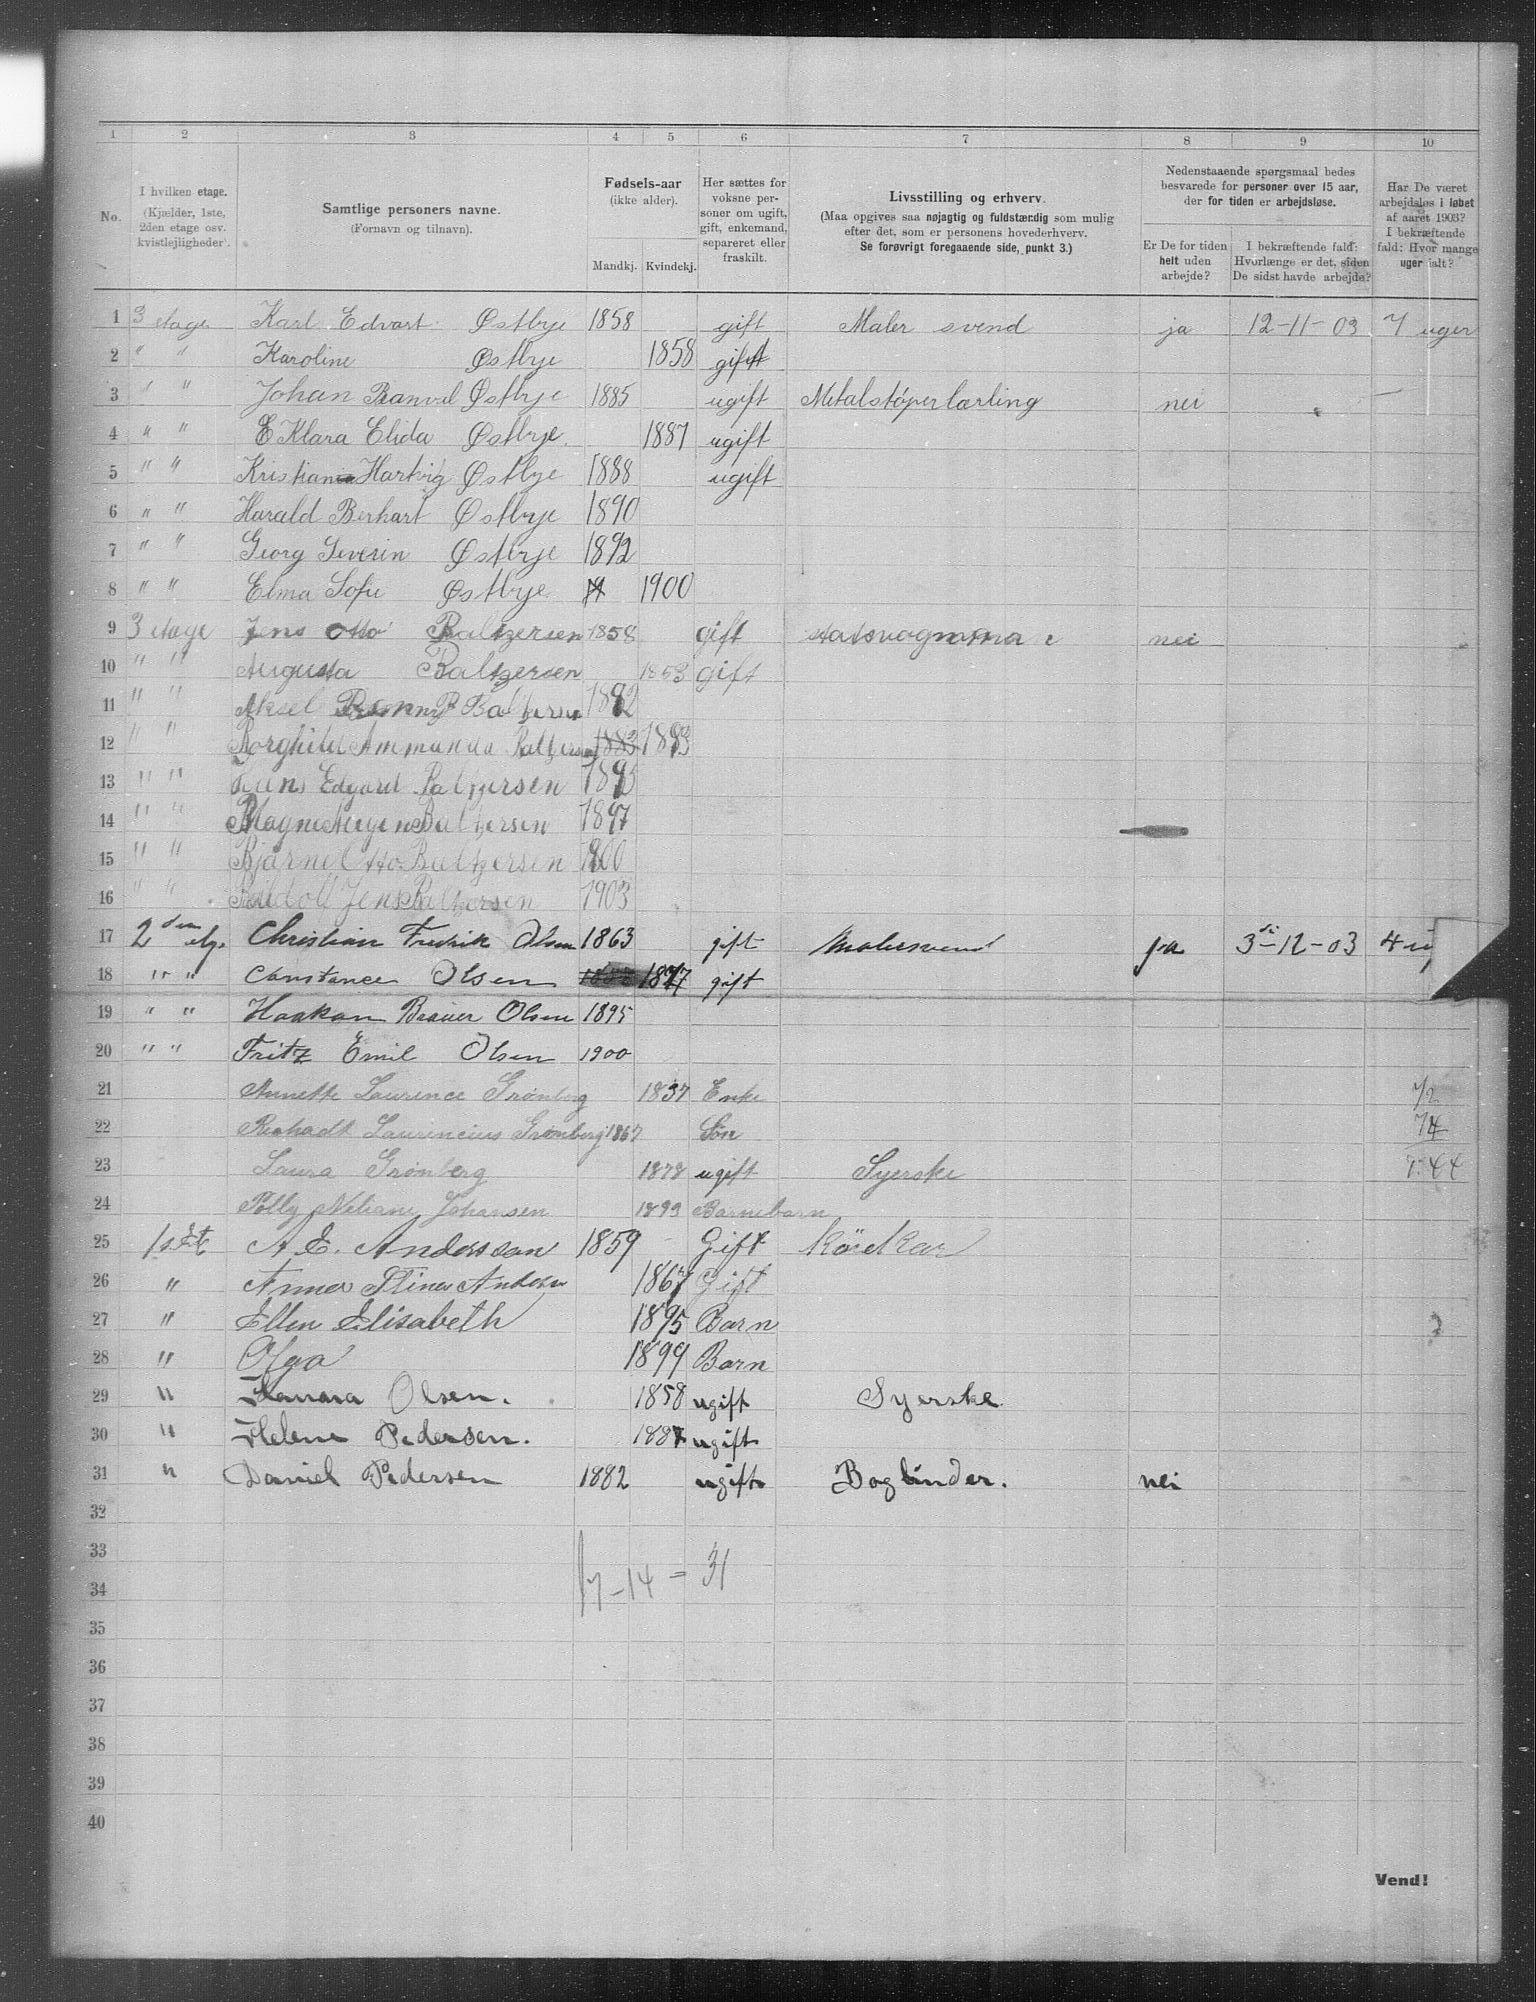 1 2 3 4 5 6 7 8 9 10
No.
I hvilken etage.
(Kjælder, 1ste,
2den etage osv.
kvistleiligheder).
Samtlige personers navne.
(Fornavn og tilnavn).
Fødsels-aar
(ikke alder).
Mandkj. Kvindekj.
Her sættes for
voksne per-
soner om ugift,
gift, enkemand,
separeret eller
fraskilt.
Livsstilling og erhverv.
(Maa opgives saa nøjagtig og fuldstændig som mulig
efter det, som er personens hovederhverv.
Se forøvrigt foregaaende side, punkt 3.)
Nedenstaaende spørgsmaal bedes
besvarede for personer over 15 aar,
der for tiden er arbejdsløse.
Er De for tiden
helt uden
arbejde?
I bekræftende fald:
Hvorlænge er det, siden
De sidst havde arbejde?
Har De været
arbejdsløs i løbet
af aaret 1903?
I bekræftende
fald: Hvor mange
uger ialt?
1 3 etage Karl Edvart Østbye 1858 gift Maler svend ja 12-11-03 7 uger
2 " " Karoline Østbye 1858 gift
3 " " Johan Østbye 1885 ugift Metalstøperlærling nei —
4 " " E Klara Elida Østbye. 1887 ugift
5 " " Kristian Hartvig Østbye 1888 ugift
6 " " Harald Berhart Østbye 1890
7 " " Georg Severin Østbye 1892
8 " " Elma Sofie Østbye 1900
9 3 etage Jens Otto Baltzersen 1858 gift nei
10 " " Augusta Baltzersen 1853 gift
11 " " Aksel Baltzersen 1892
12 " " Borghild Ammanda Baltzersen 1883 1893
13 " " Edgard Baltzersen 1895
14 " " Baltzersen 1897
15 " " Bjarne Otto Baltzersen 1900
16 " " Jens Baltzersen 1903
17 2den etg. Christian Fredrik Olsen 1863 gift Malersvend ja 3di-12-03 4
18 " " Constance Olsen 1877 gift
19 " " Haakon Olsen 1895
20 " " Fritz Emil Olsen 1900
21 Annette Laurence Grønberg 1837 Enke 72
22 Laurencius Grønberg 1867 Søn 74
23 Laura Grønberg 1878 ugift Syerske
24 Johansen 1893 Barnebarn
25 1st Et A. E. Andersson 1859 Gift Körekar
26 " Anna Stina Anderson 1867 Gift
27 " Ellen Elisabeth 1895 Barn
28 " Olga 1899 Barn
29 " Olsen. 1858 ugift Syerske.
30 " Helene Pedersen. 1887 ugift
31 " Daniel Pedersen 1882 ugift Bogbinder. nei
32
33
34 17-14 = 31
35
36
37
38
39
40
Vend!